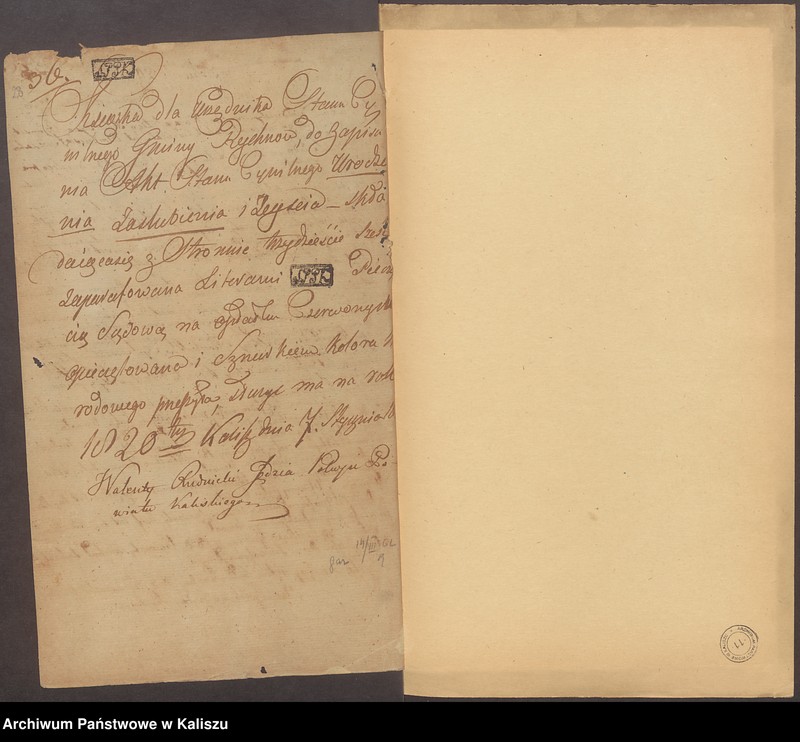 36.
SPK
Ksiąszka dla Urzędnika Stanu Cy
wilnego Gminy Rychnow, do Zapisa
nia Akt Stanu Cywilnego Urodze
nia Zaslubienia i Zeyscia – skła
daiącasię z Stronnic trzydzieście sześć
Zaparafowana Literami SPK Piecz
cią Sądową na opłatku Czerwonym
opieczętowana i Sznurkiem Koloru
rodowego przeszyta, służyć ma na rok
1820 ty Kalisz dnia 7. Stycznia
Walenty Rudnicki Sędzia Pokoju Po
wiatu Kaliskiego
14/III 62
Archiwum Państwowe w Kaliszu